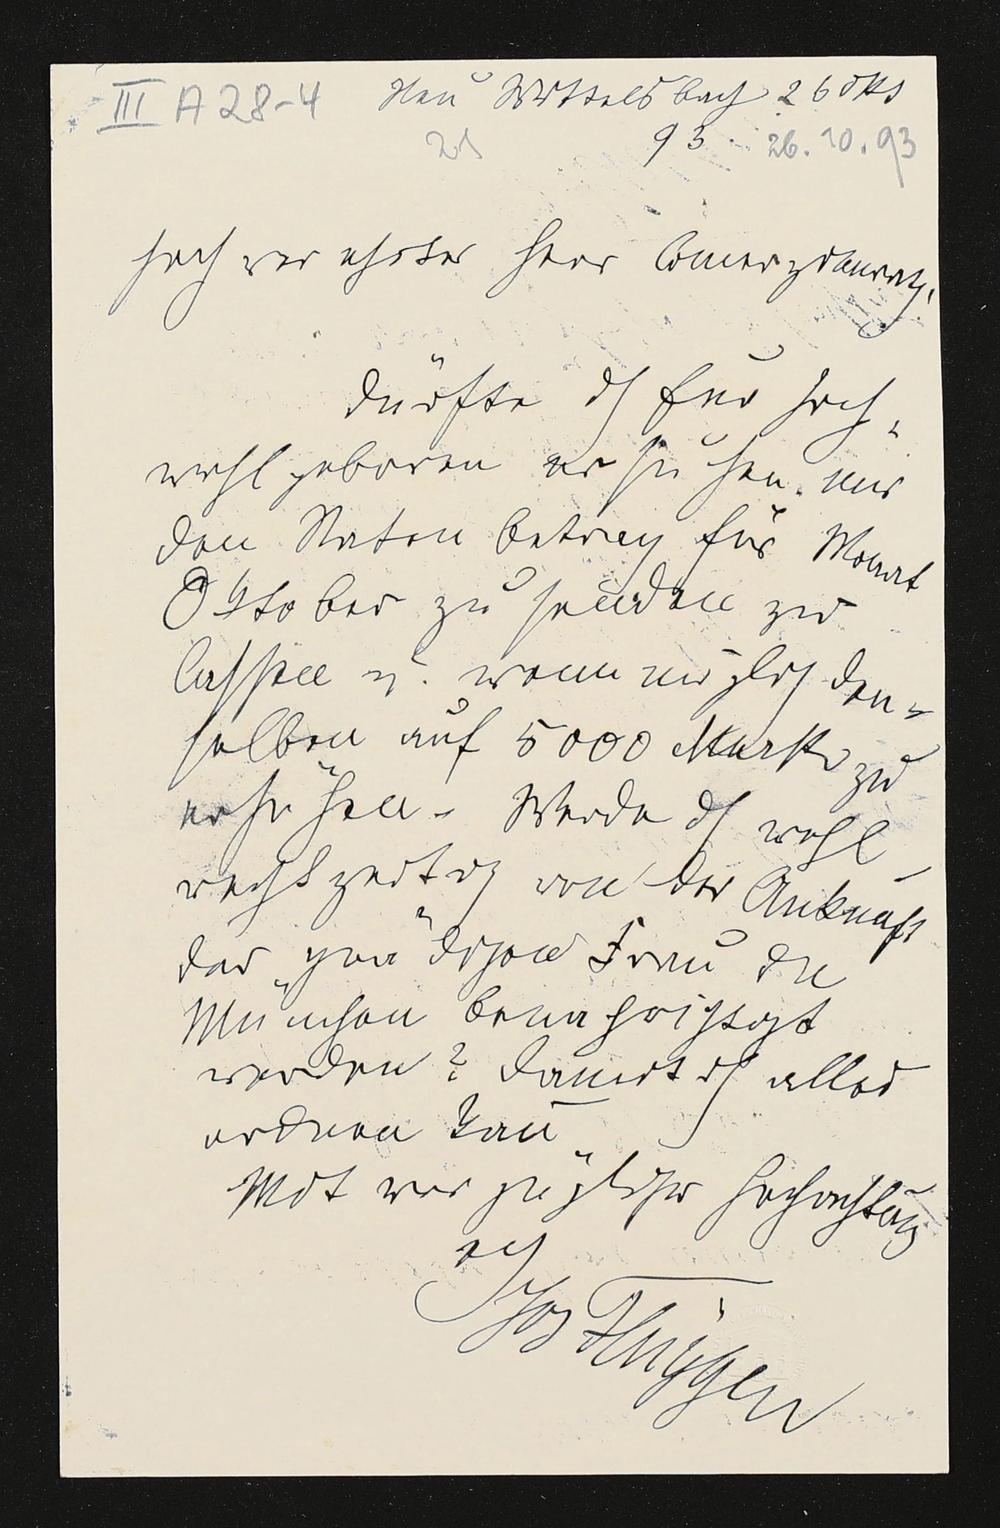 III A 28-4 Neu Wittelsbach 26 Okt
21 93. 26.10.93
Hochverehrter Herr Comerzienrath,
Dürfte ich Euer Hoch-
wohlgeboren ersuchen mir
den Ratenbetrag für Monat
Oktober zu senden zu
lassen u. wenn möglich den=
selben auf 5000 Mark zu
erhöhen. Werde ich wohl
rechtzeitig von der Ankunft
der gnädigen Frau in
München benachrichtigt
werden? damit ich alles
ordnen kan̄
Mit vorzüglicher Hochachtung
Jos Flüggen